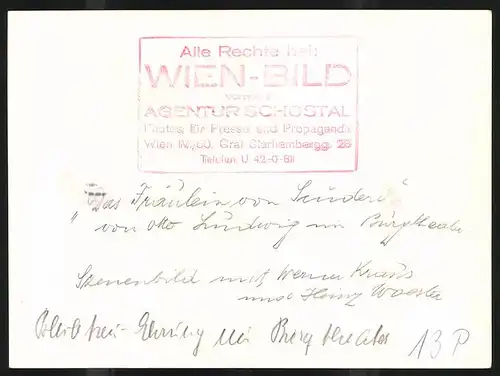 Alle Rechte bei:
WIEN-BILD
AGENTUR SCHOSTAL
Photos für Presse und Propaganda
Wien IV./50, Graf Starhembergg. 26
Telefon U 42-0-61
"Das Fräulein von Scuderi"
von Otto Ludwig im Burgtheater
Szenenbild mit Werner Krauss
und Heinz Woester
Ehrung im Burgtheater
13 P